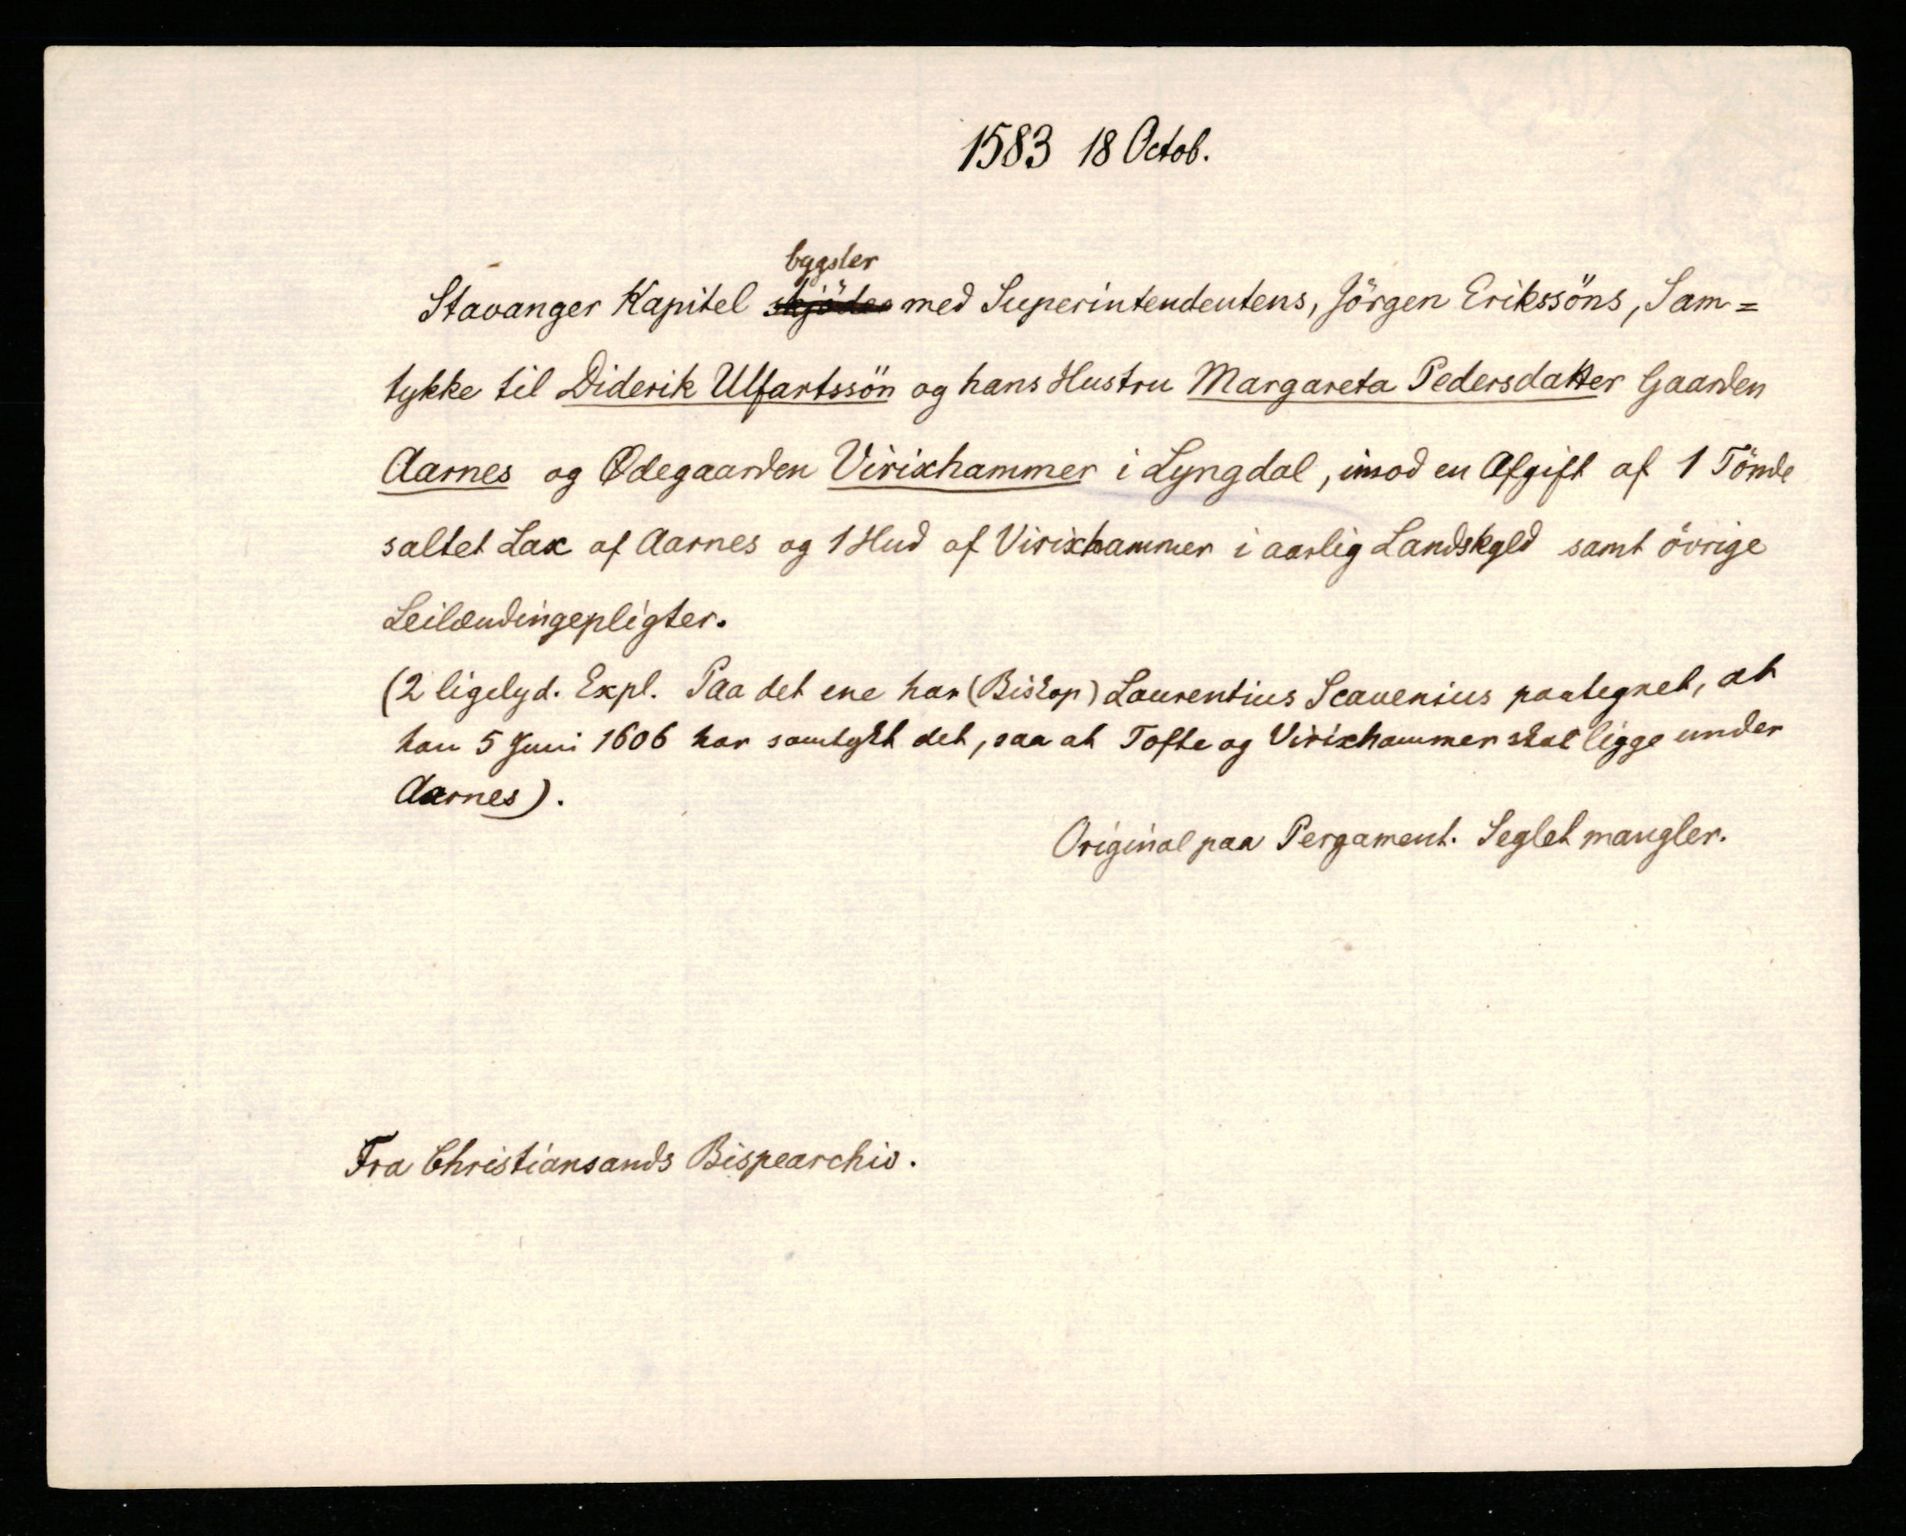 1583 18 Octob.
bygsler
Stavanger Kapitel skjöder med Superintendentens, Jörgen Erikssöns, Sam=
tykke til Diderik Ulfartssön og hans Hustru Margareta Pedersdatter Gaarden
Aarnes og Ødegaarden Virixhammer i Lyngdal, imod en Afgift af 1 Tönde
saltet Lax af Aarnes og 1 Hud af Virixhammer i aarlig Landskyld samt övrige
Leilændingepligter.
(2 ligelyd. Expl. Paa det ene har (Biskop) Laurentius Scavenius paategnet, at
han 5 Juni 1606 har samtykt det, saa at Tofte og Virixhammer skal ligge under
Aarnes).
Original paa Pergament. Seglet mangler.
Fra Christiansands Bispearchiv.